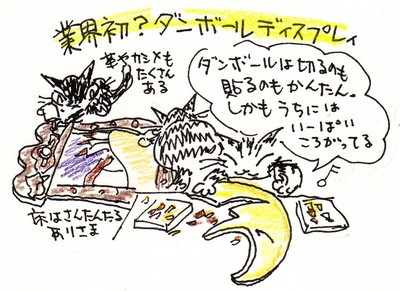 業界初?ダンボールディスプレイ
革やカシメも
たくさん
ある
ダンボールは切るのも
貼るのもかんたん。
しかもうちには
いーぱい
ころがってる
床はさんたんたる
ありさま